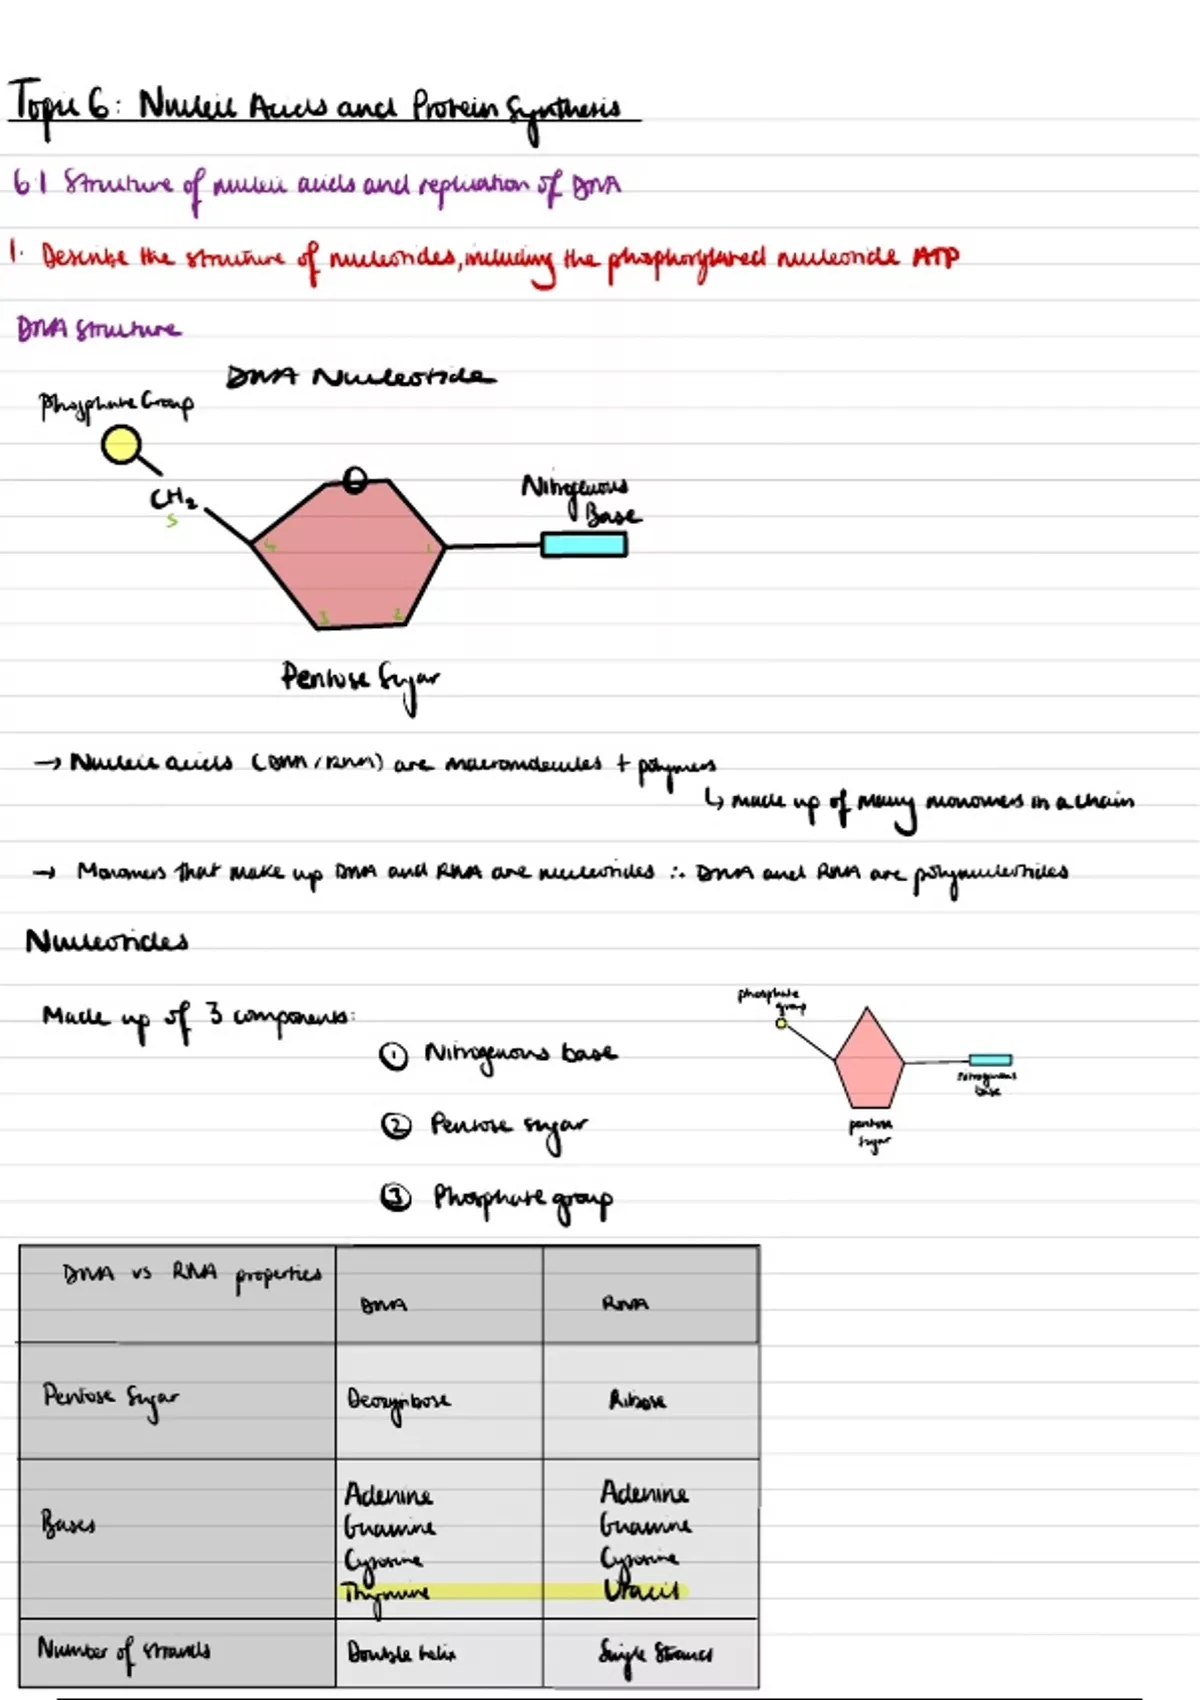 Topic 6: Nucleic Acids and Protein Synthesis
6.1 Structure of nucleic acids and replication of DNA
1. Describe the structure of nucleotides, including the phosphorylated nucleotide ATP
DNA Structure
DNA Nucleotide
Phosphate Group
O
CH₂
5
4
1
3
2
Nitrogenous
Base
Pentose Sugar
→ Nucleic acids (DNA/RNA) are macromolecules + polymers
↳ made up of many monomers in a chain
→ Monomers that make up DNA and RNA are nucleotides ∴ DNA and RNA are polynucleotides
Nucleotides
Made up of 3 components:
① Nitrogenous base
② Pentose sugar
③ Phosphate group
phosphate
group
nitrogenous
base
pentose
sugar
DNA vs RNA properties
DNA
RNA
Pentose Sugar
Deoxyribose
Ribose
Bases
Adenine
Guanine
Cytosine
Thymine
Adenine
Guanine
Cytosine
Uracil
Number of strands
Double helix
Single Strand